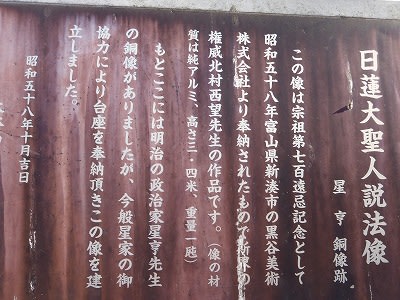 日蓮大聖人説法像
星亨銅像跡
この像は宗祖第七百遠忌記念として
昭和五十八年富山県新湊市の黒谷美術
株式会社より奉納されたもので斯界の
権威北村西望先生の作品です。(像の材
質は純アルミ、高さ三・四米、重量一屯)
もとここには明治の政治家星亨先生
の銅像がありましたが、今般星家の御
協力により台座を奉納頂きこの像を建
立しました。
昭和五十八年十月吉日